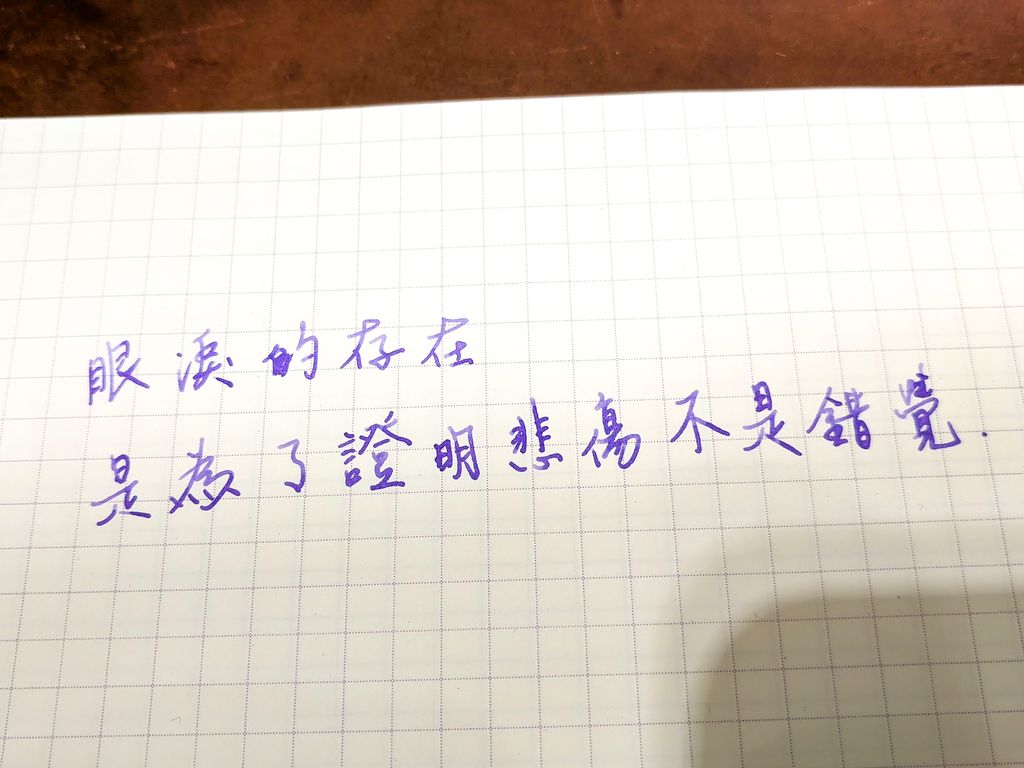 眼淚的存在
是為了證明悲傷不是錯覺.